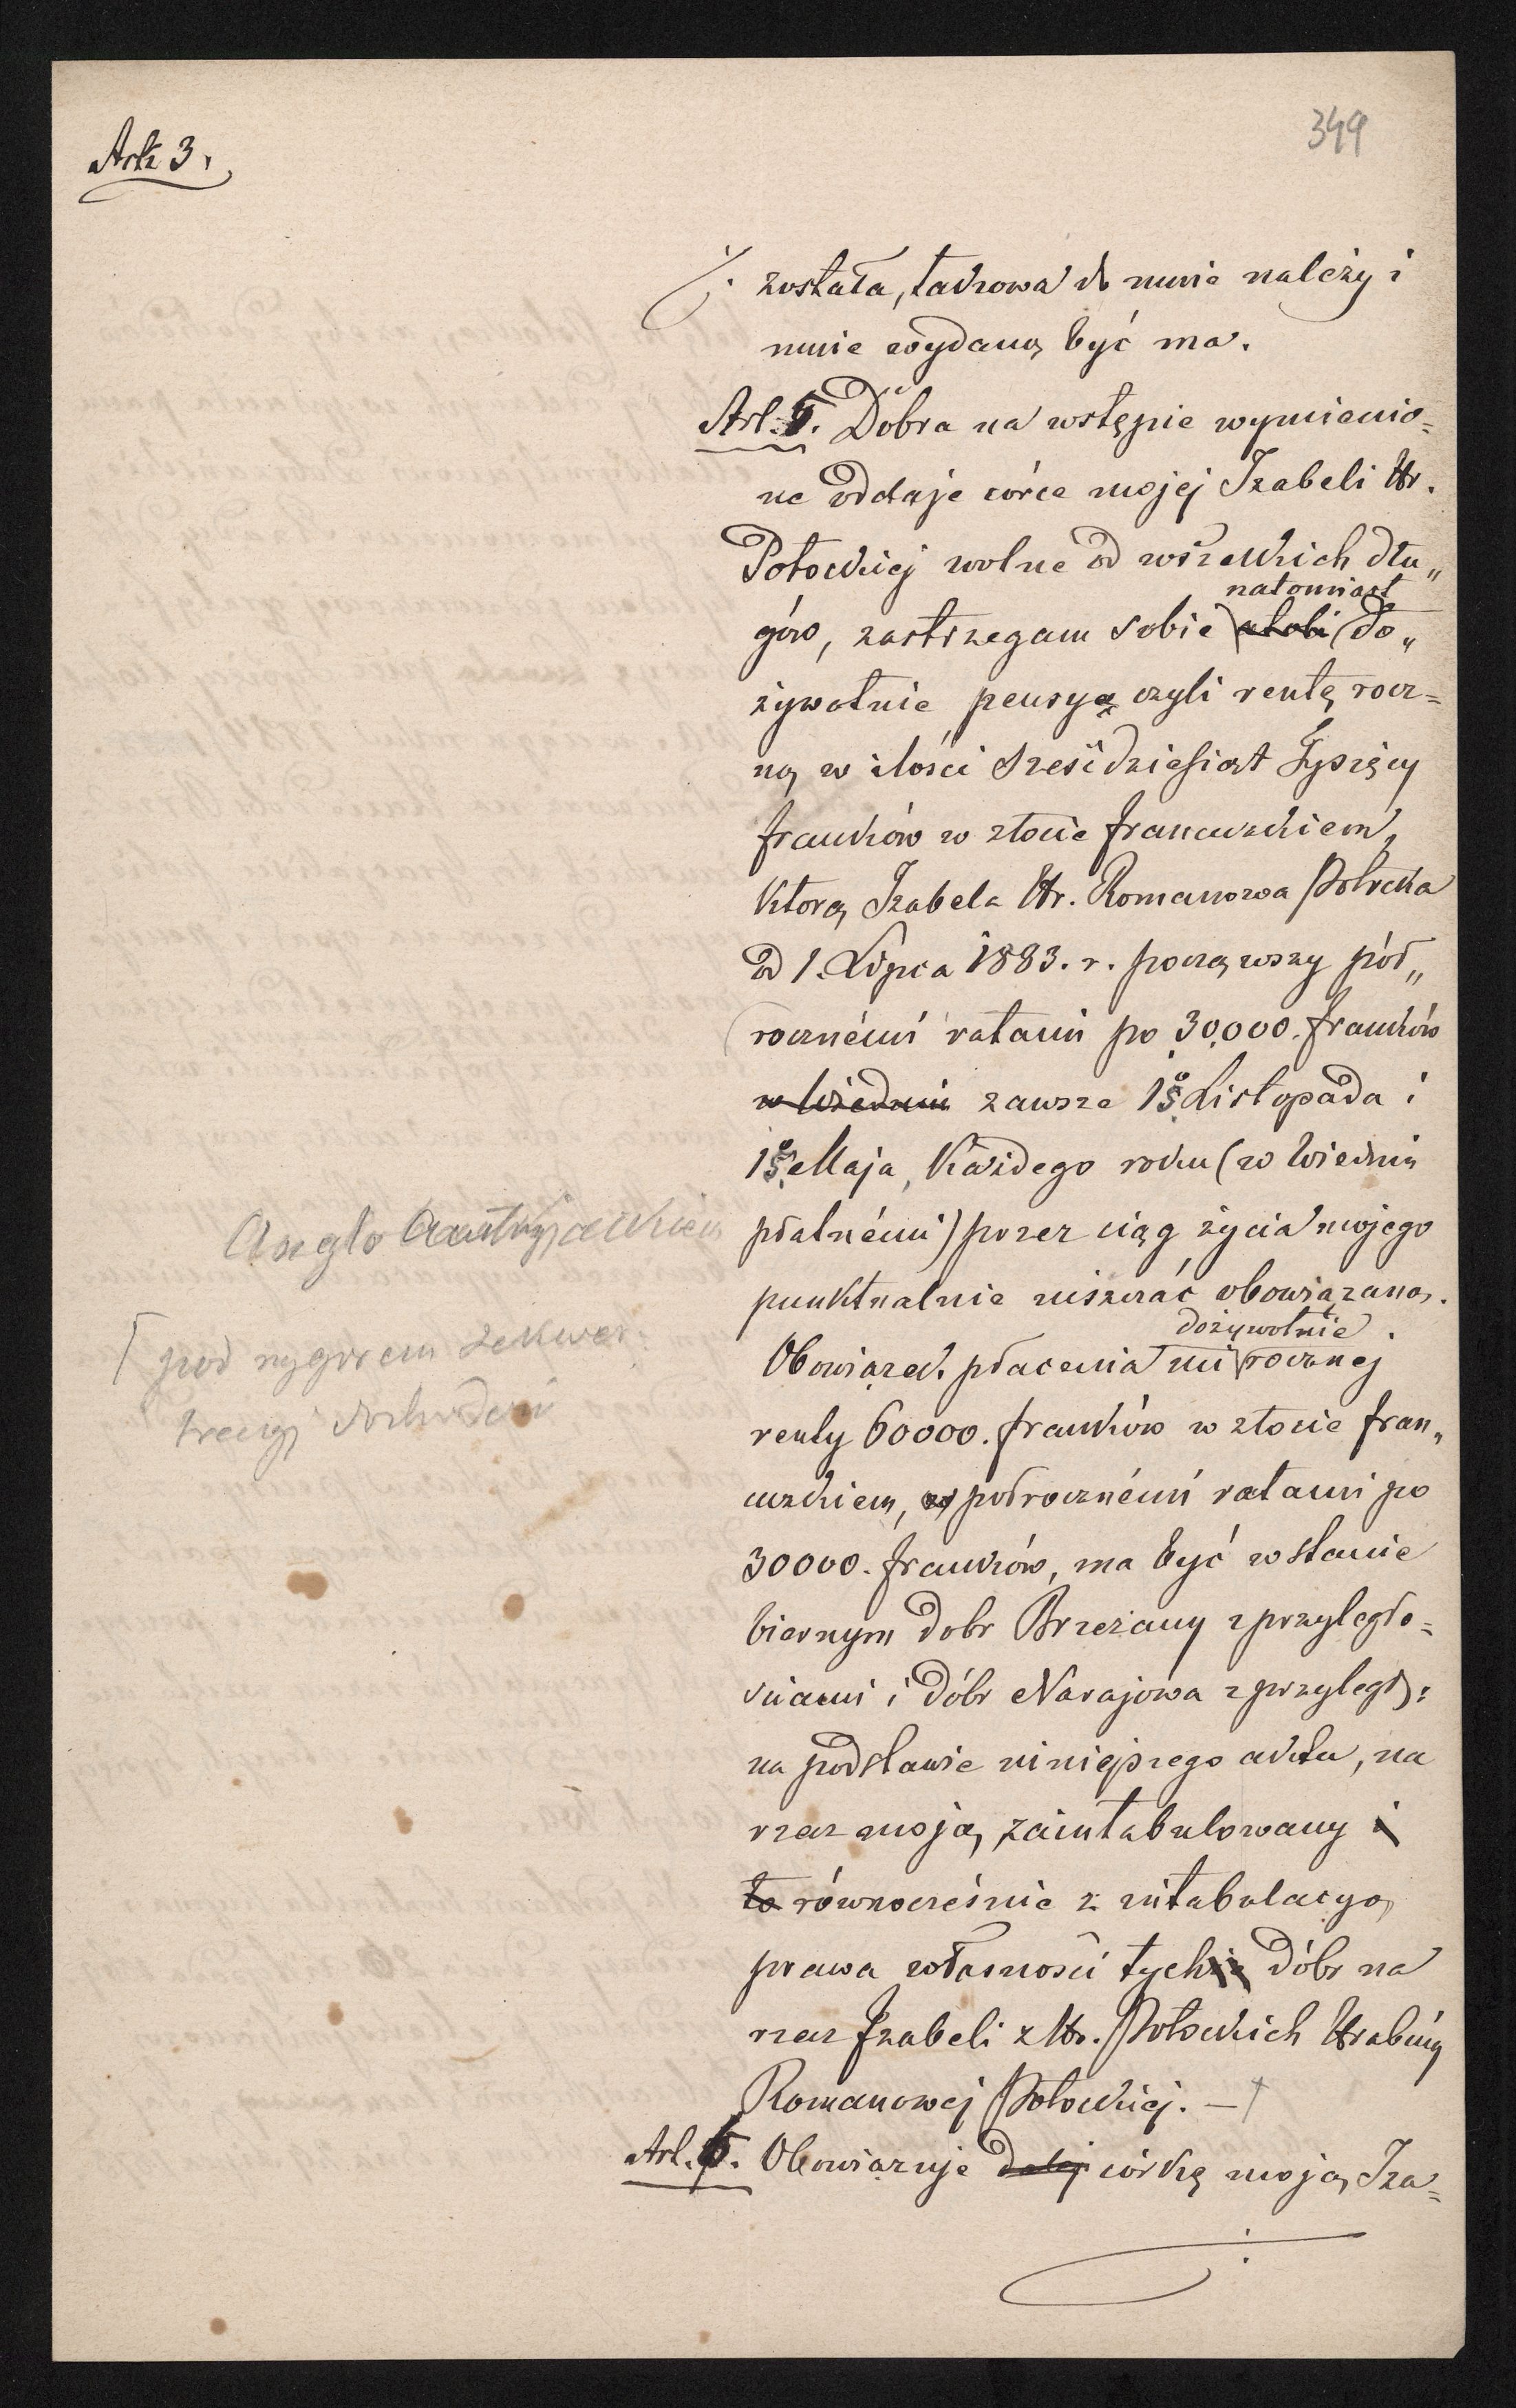 Ark 3.
349
·/. została, takowa do mnie należy i
mnie wydaną być ma.
Art. 5. Dobra na wstępie wymienio=
ne oddaje córce mojej Izabeli Hr.
Potockiej wolne od wszelkich dłu„
natomiast
gów, zastrzegam sobie do„
żywotnie pensyę czyli rentę rocz=
ną w ilości sześćdziesiąt tysięcy
franków w złocie francuzkiem,
którą Izabela Hr. Romanowa Potocka
od 1. Lipca 1883. r. począwszy pół„
rocznémi ratami po 30,000. franków
w Wiedniu zawsze 1go Listopada i
1go Maja, każdego roku (w Wiedniu
płatnémi) przez ciąg życia mojego
Anglo Austryjackiem
punktualnie uiszczać obowiązaną.
dożywotnie
Obowiązek płacenia mi rocznej
pod rygorem sekwes=
tracyi dochodów
renty 60000. franków w złocie fran„
cuzkiem, w półrocznémi ratami po
30000. franków, ma być w stanie
biernym dobr Brzeżany z przyległo=
ściami i dóbr Narajowa z przyległ:
na podstawie niniejszego aktu, na
rzecz moją zaintabulowany i
to równocześnie z intabulacyą
prawa własności tychże dóbr na
rzecz Izabeli z Hr. Potockich Hrabiny
Romanowej Potockiej. —
Art. 6. Obowiązuje dalej córkę moją Iza=